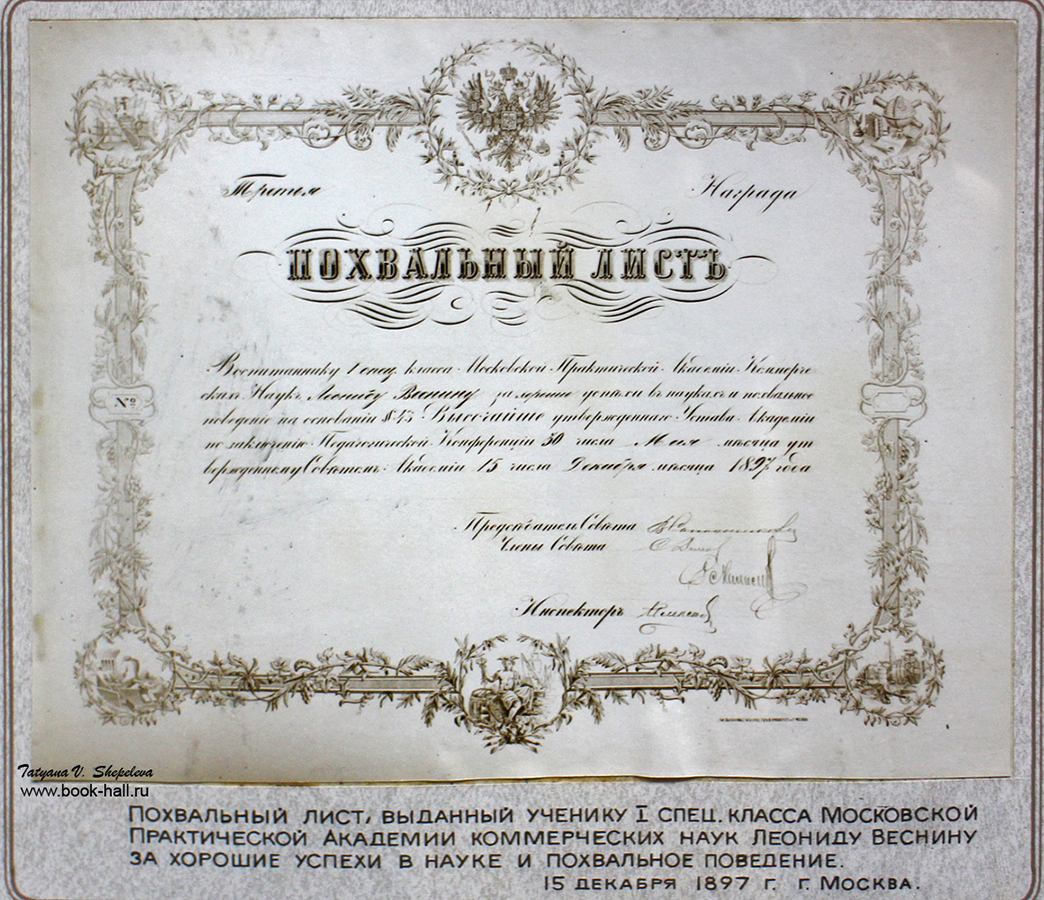 Третья Награда
ПОХВАЛЬНЫЙ ЛИСТЪ
Воспитаннику 1 спец. класса Московской Практической Академіи Коммерче
скихъ Наукъ Леониду Веснину за хорошіе успѣхи въ наукахъ и похвальное
поведеніе на основаніи § 43 Высочайше утвержденнаго Устава Академіи
по заключенію Педагогической Конференціи 30 числа Мая мѣсяца ут
вержденному Совѣтомъ Академіи 15 числа Декабря мѣсяца 1897 года
№
Предсѣдатель Совѣта
Члены Совѣта
Инспекторъ
Tatyana V. Shepeleva
www.book-hall.ru
ПОХВАЛЬНЫЙ ЛИСТ, ВЫДАННЫЙ УЧЕНИКУ I СПЕЦ. КЛАССА МОСКОВСКОЙ
ПРАКТИЧЕСКОЙ АКАДЕМИИ КОММЕРЧЕСКИХ НАУК ЛЕОНИДУ ВЕСНИНУ
ЗА ХОРОШИЕ УСПЕХИ В НАУКЕ И ПОХВАЛЬНОЕ ПОВЕДЕНИЕ.
15 ДЕКАБРЯ 1897 Г. Г. МОСКВА.